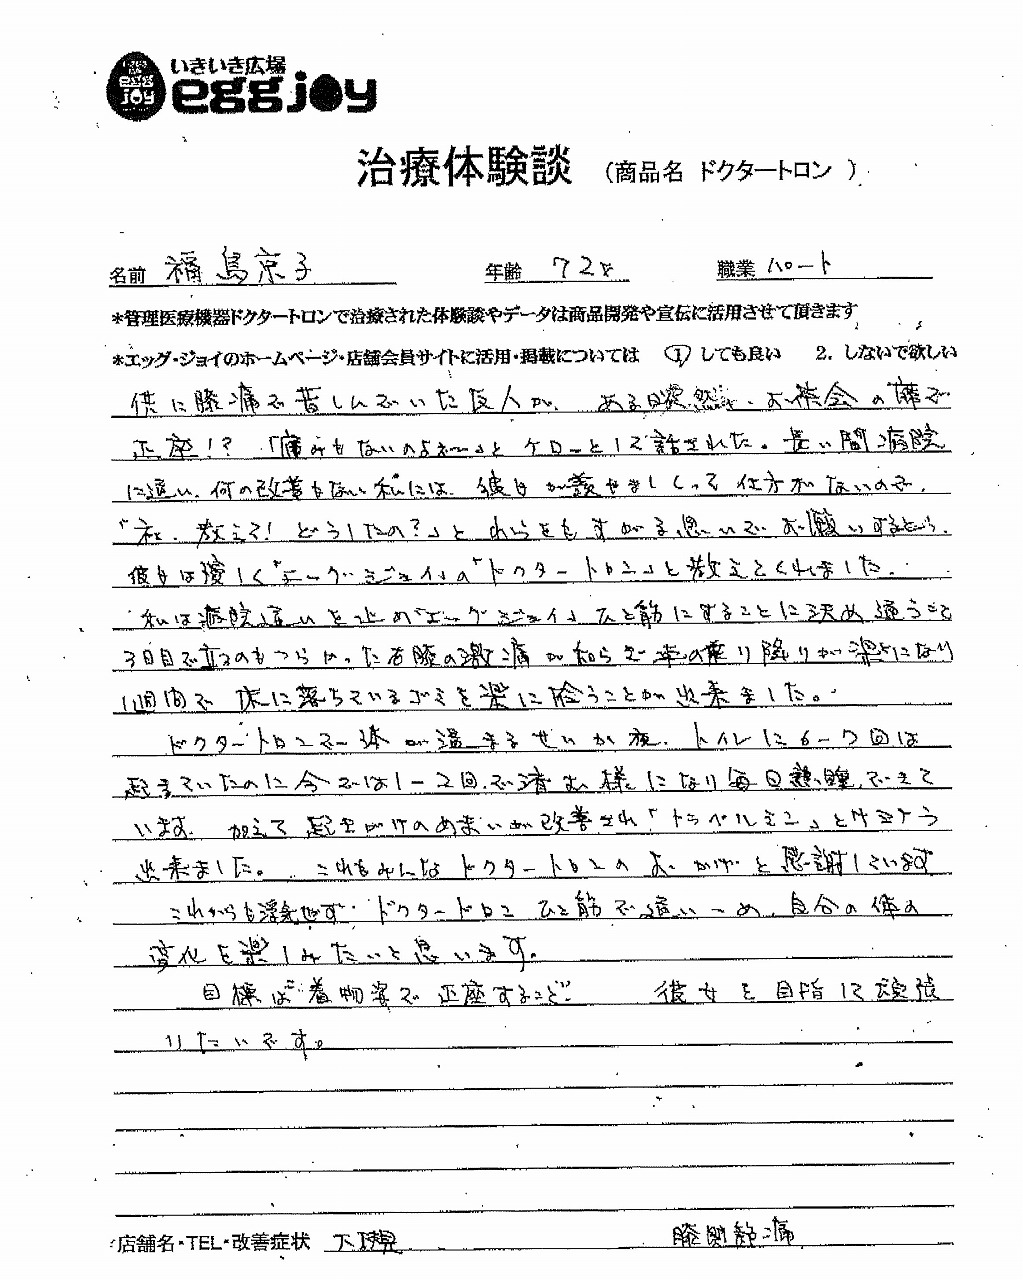 いきいき広場
egg joy
eggjoy
治療体験談 （商品名 ドクタートロン ）
名前 福島京子 年齢 72才 職業 パート
*管理医療機器ドクタートロンで治療された体験談やデータは商品開発や宣伝に活用させて頂きます
*エッグ・ジョイのホームページ・店舗会員サイトに活用・掲載については ① しても良い 2. しないで欲しい
供に膝痛で苦しんでいた友人が、ある日突然、お茶会の席で
正座！？「痛みもないのよネ〜」とケローとして話された。長い間病院
に通い、何の改善もない私には、彼女が羨やましくって仕方がないので、
「ネ、教えて！どうしたの？」とわらをもすがる思いでお願いするとう、
彼女は優しく「エーグ・ジョイ」の「ドクタートロン」と教えてくれました。
私は病院通いを止め「エッグジョイ」ひと筋にすることに決め通うこと
3日目で立つのもつらかった右膝の激痛が和らぎ車の乗り降りが楽になり
1週間で床に落ちているゴミを楽に拾うことが出来ました。
ドクタートロンで体が温まるせいか夜、トイレに6-7回は
起きていたのに今では1-2回で済む様になり毎日熟睡できて
います。加えて起きがけのめまいが改善され「トラベルミン」とサヨナラ
出来ました。これもみんなドクタートロンのおかげと感謝しています
これからも浮気せず ドクタードロン ひと筋で通いつめ、自分の体の
変化を楽しみたいと思います。
目標は"着物姿で正座すること" 彼女を目指して頑張
りたいです。
店舗名・TEL・改善症状 膝関節痛